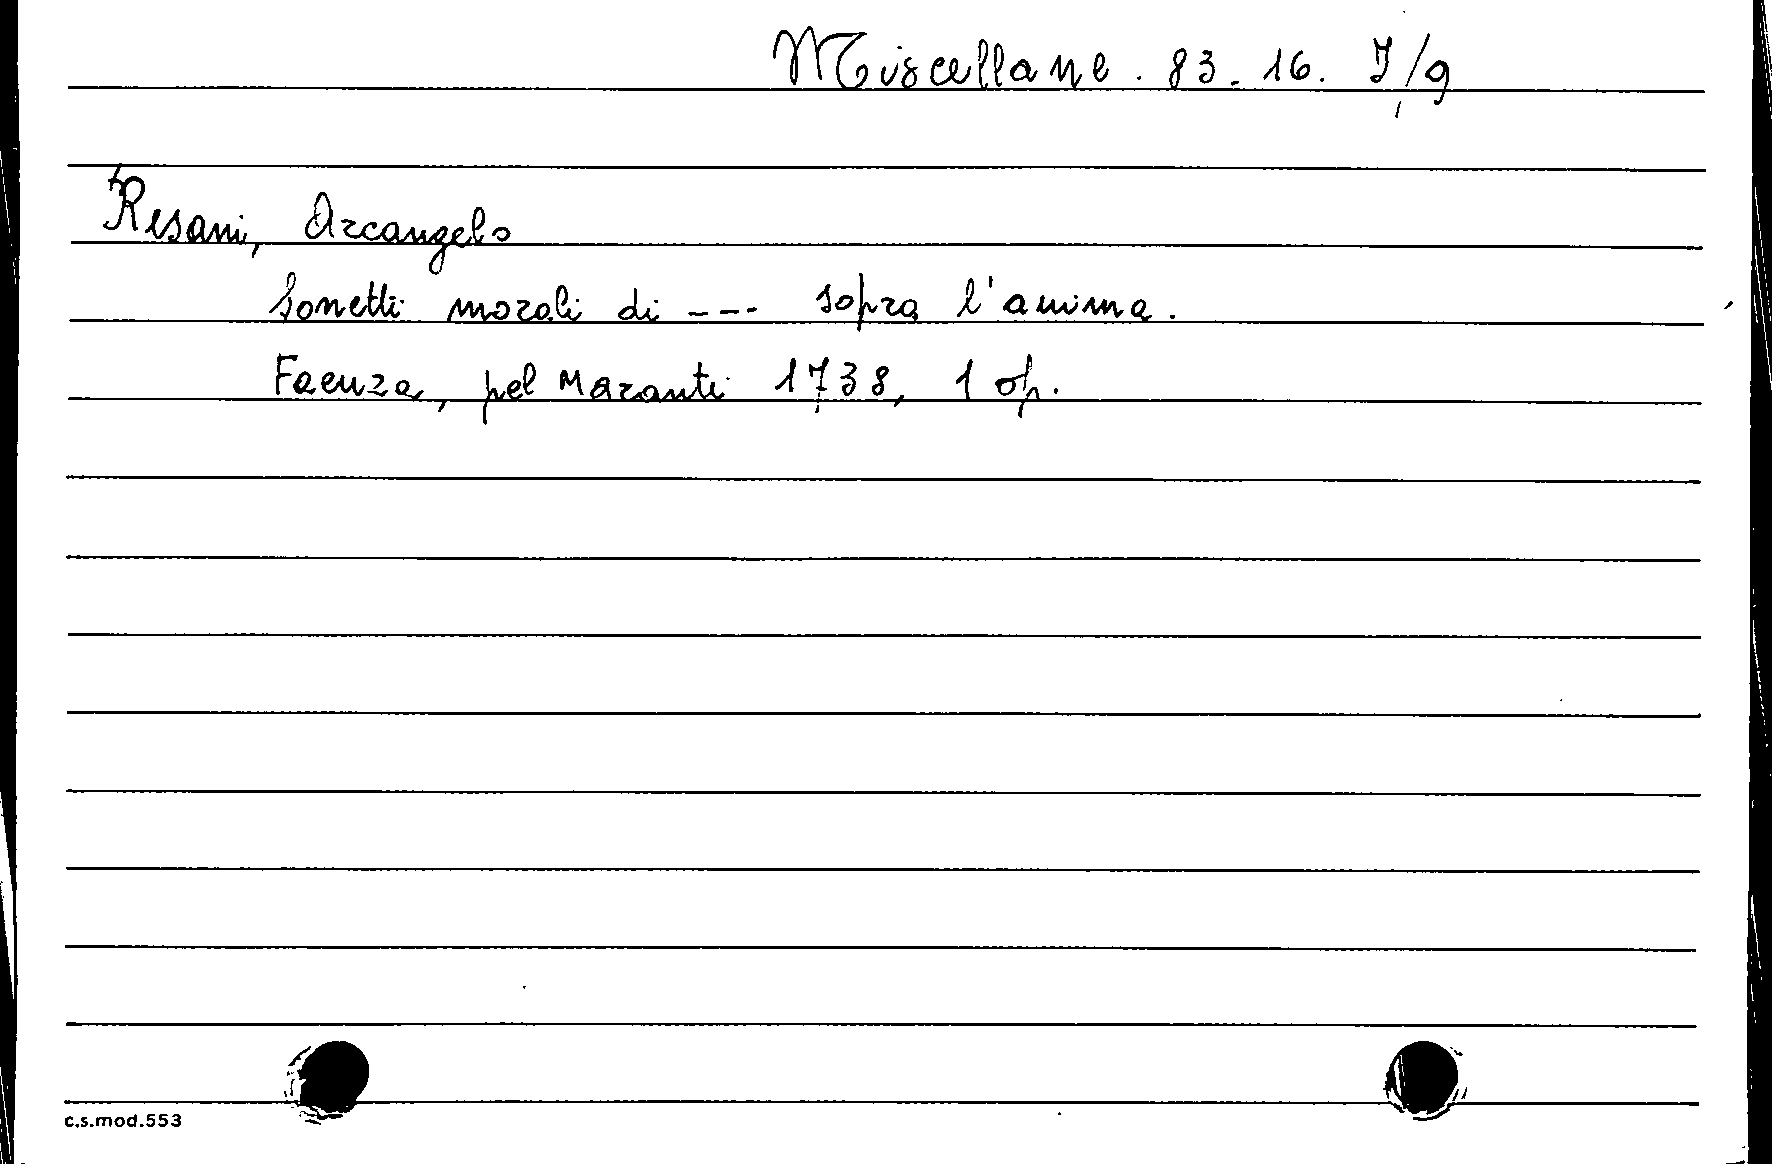 Miscellane. 83. 16. I/9
Resani, Arcangelo
Sonetti morali di --- sopra l'anima.
Faenza, pel Maranti 1738, 1 op.
c.s.mod.553